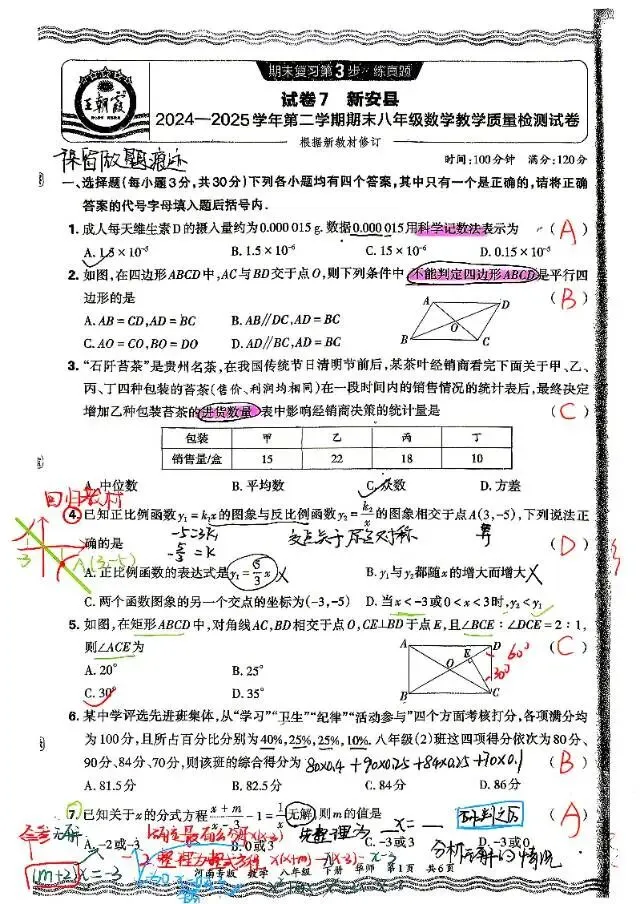 期末复习第3步·练真题
王朝霞
试卷7 新安县
2024—2025学年第二学期期末八年级数学教学质量检测试卷
根据新教材修订
保留做题痕迹
时间:100分钟 满分:120分
一、选择题(每小题3分,共30分)下列各小题均有四个答案,其中只有一个是正确的,请将正确
答案的代号字母填入题后括号内.
1. 成人每天维生素D的摄入量约为0.000 015 g. 数据0.000 015用科学记数法表示为 (A)
A. 1.5×10⁻⁵ B. 1.5×10⁻⁶ C. 15×10⁻⁶ D. 0.15×10⁻⁵
2. 如图,在四边形ABCD中,AC与BD交于点O,则下列条件中不能判定四边形ABCD是平行四
边形的是 (B)
A. AB=CD,AD=BC B. AB∥DC,AD=BC
C. AO=CO,BO=DO D. AD∥BC,AD=BC
A D O B C
3. “石阡苔茶”是贵州名茶,在我国传统节日清明节前后,某茶叶经销商看完下面关于甲、乙、
丙、丁四种包装的苔茶(售价、利润均相同)在一段时间内的销售情况的统计表后,最终决定
增加乙种包装苔茶的进货数量.表中影响经销商决策的统计量是 (C)
包装 甲 乙 丙 丁
销售量/盒 15 22 18 10
A. 中位数 B. 平均数 C. 众数 D. 方差
回归教材
4. 已知正比例函数y₁=k₁x的图象与反比例函数y₂=k₂/x的图象相交于点A(3,-5),下列说法正
-5=3k₁ 交点关于原点对称
确的是 (D)
-5/3=k
-3 A(3,-5)
A. 正比例函数的表达式是y₁=5/3x X B. y₁与y₂都随x的增大而增大 X
C. 两个函数图象的另一个交点的坐标为(-3,-5) D. 当x<-3或0<x<3时,y₂<y₁
5. 如图,在矩形ABCD中,对角线AC,BD相交于点O,CE⊥BD于点E,且∠BCE:∠DCE=2:1,
则∠ACE为 (C)
A. 20° B. 25°
C. 30° D. 35°
A D E O B C 60° 30°
6. 某中学评选先进班集体,从“学习”“卫生”“纪律”“活动参与”四个方面考核打分,各项满分均
为100分,且所占百分比分别为40%,25%,25%,10%. 八年级(2)班这四项得分依次为80分、
90分、84分、70分,则该班的综合得分为 80×0.4+90×0.25+84×0.25+70×0.1 (B)
A. 81.5分 B. 82.5分 C. 84分 D. 86分
7. 已知关于x的分式方程(x+m)/(x-3)-1=1/x无解,则m的值是 (A)
A. -2或-3 C. -3或3 D. -3或0
x=
(m+2)x=-3
分析无解的情况
河南专版 数学 八年级 下册 华师 第1页 共6页